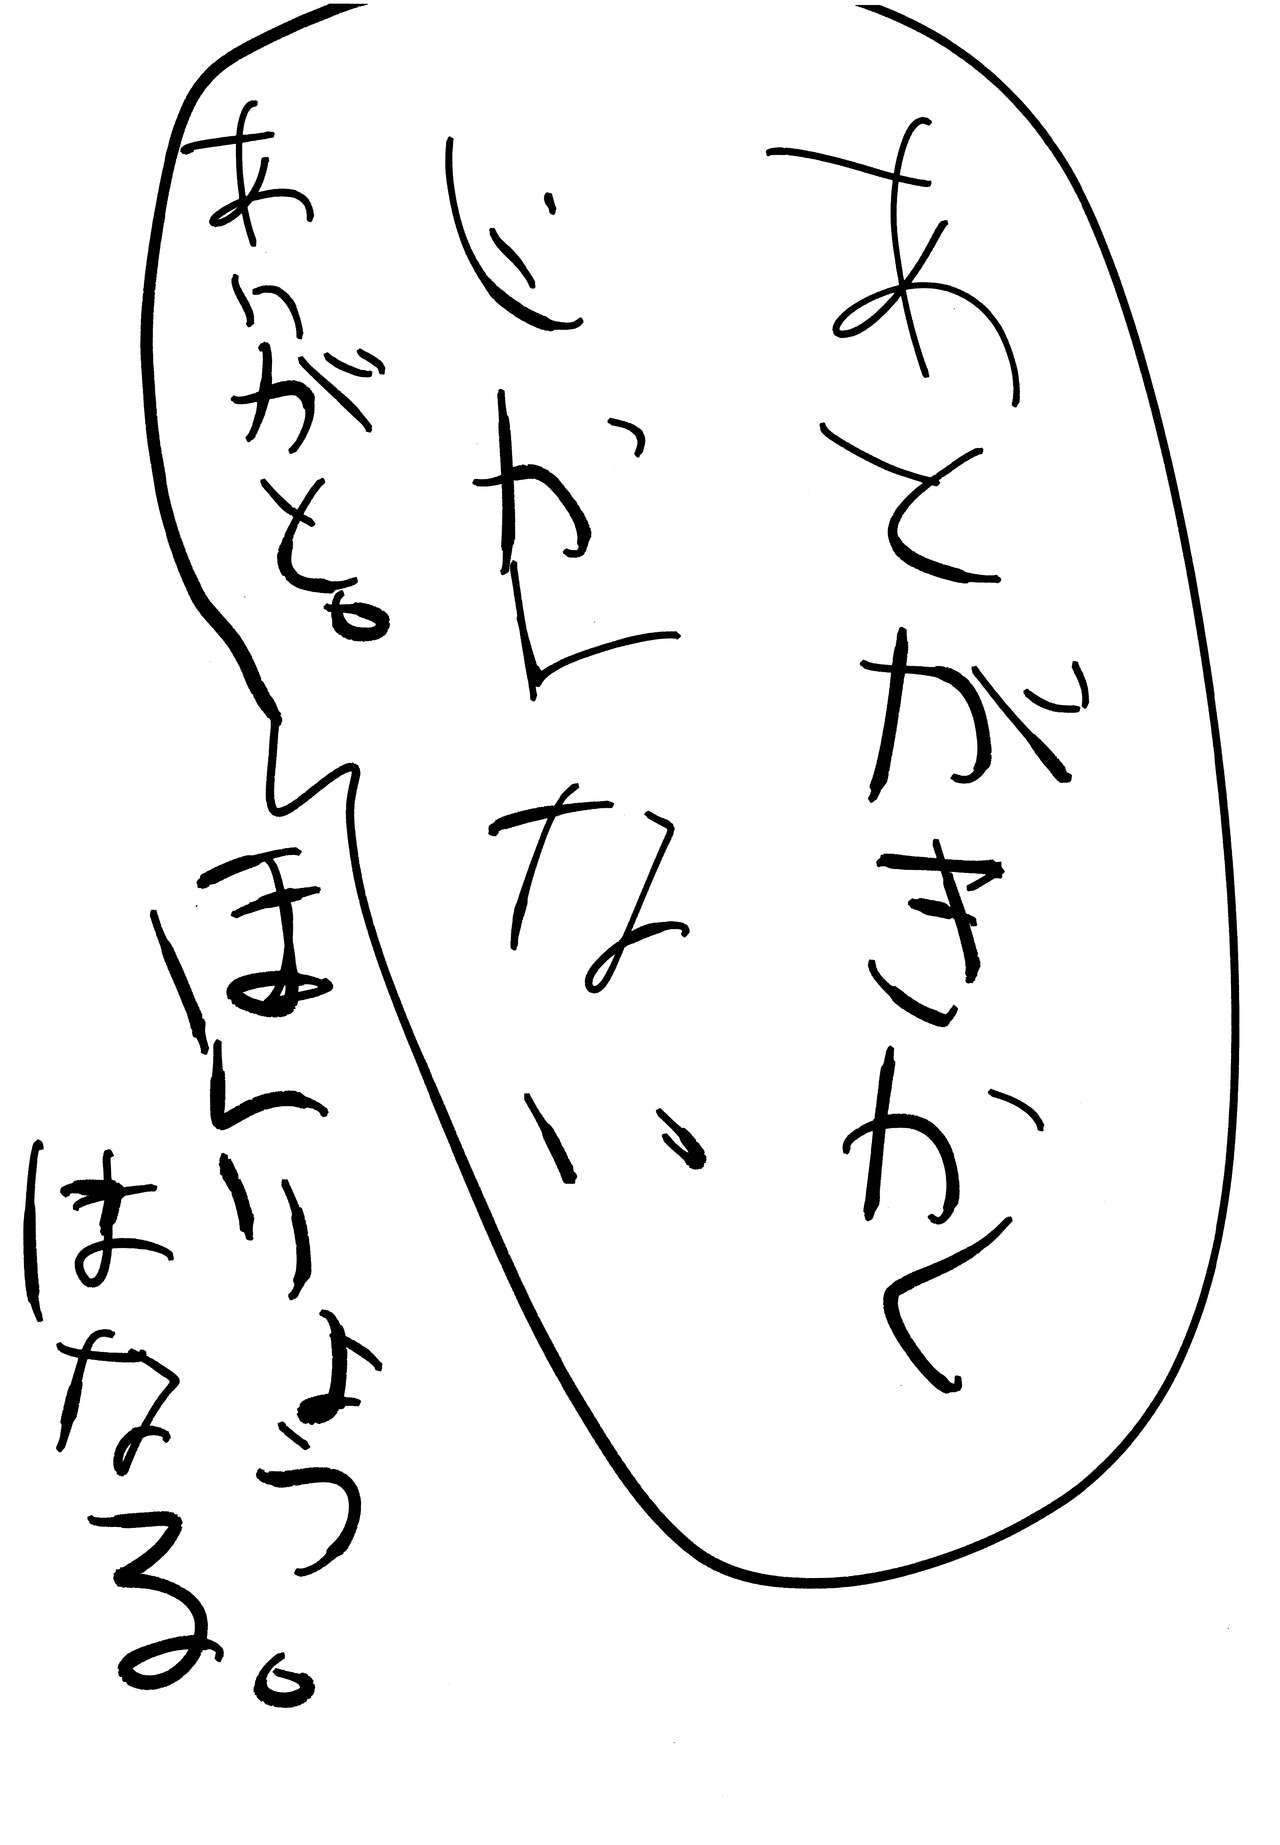 あとがきかく
じかんない
ありがと。
ほんりょう。
はなる